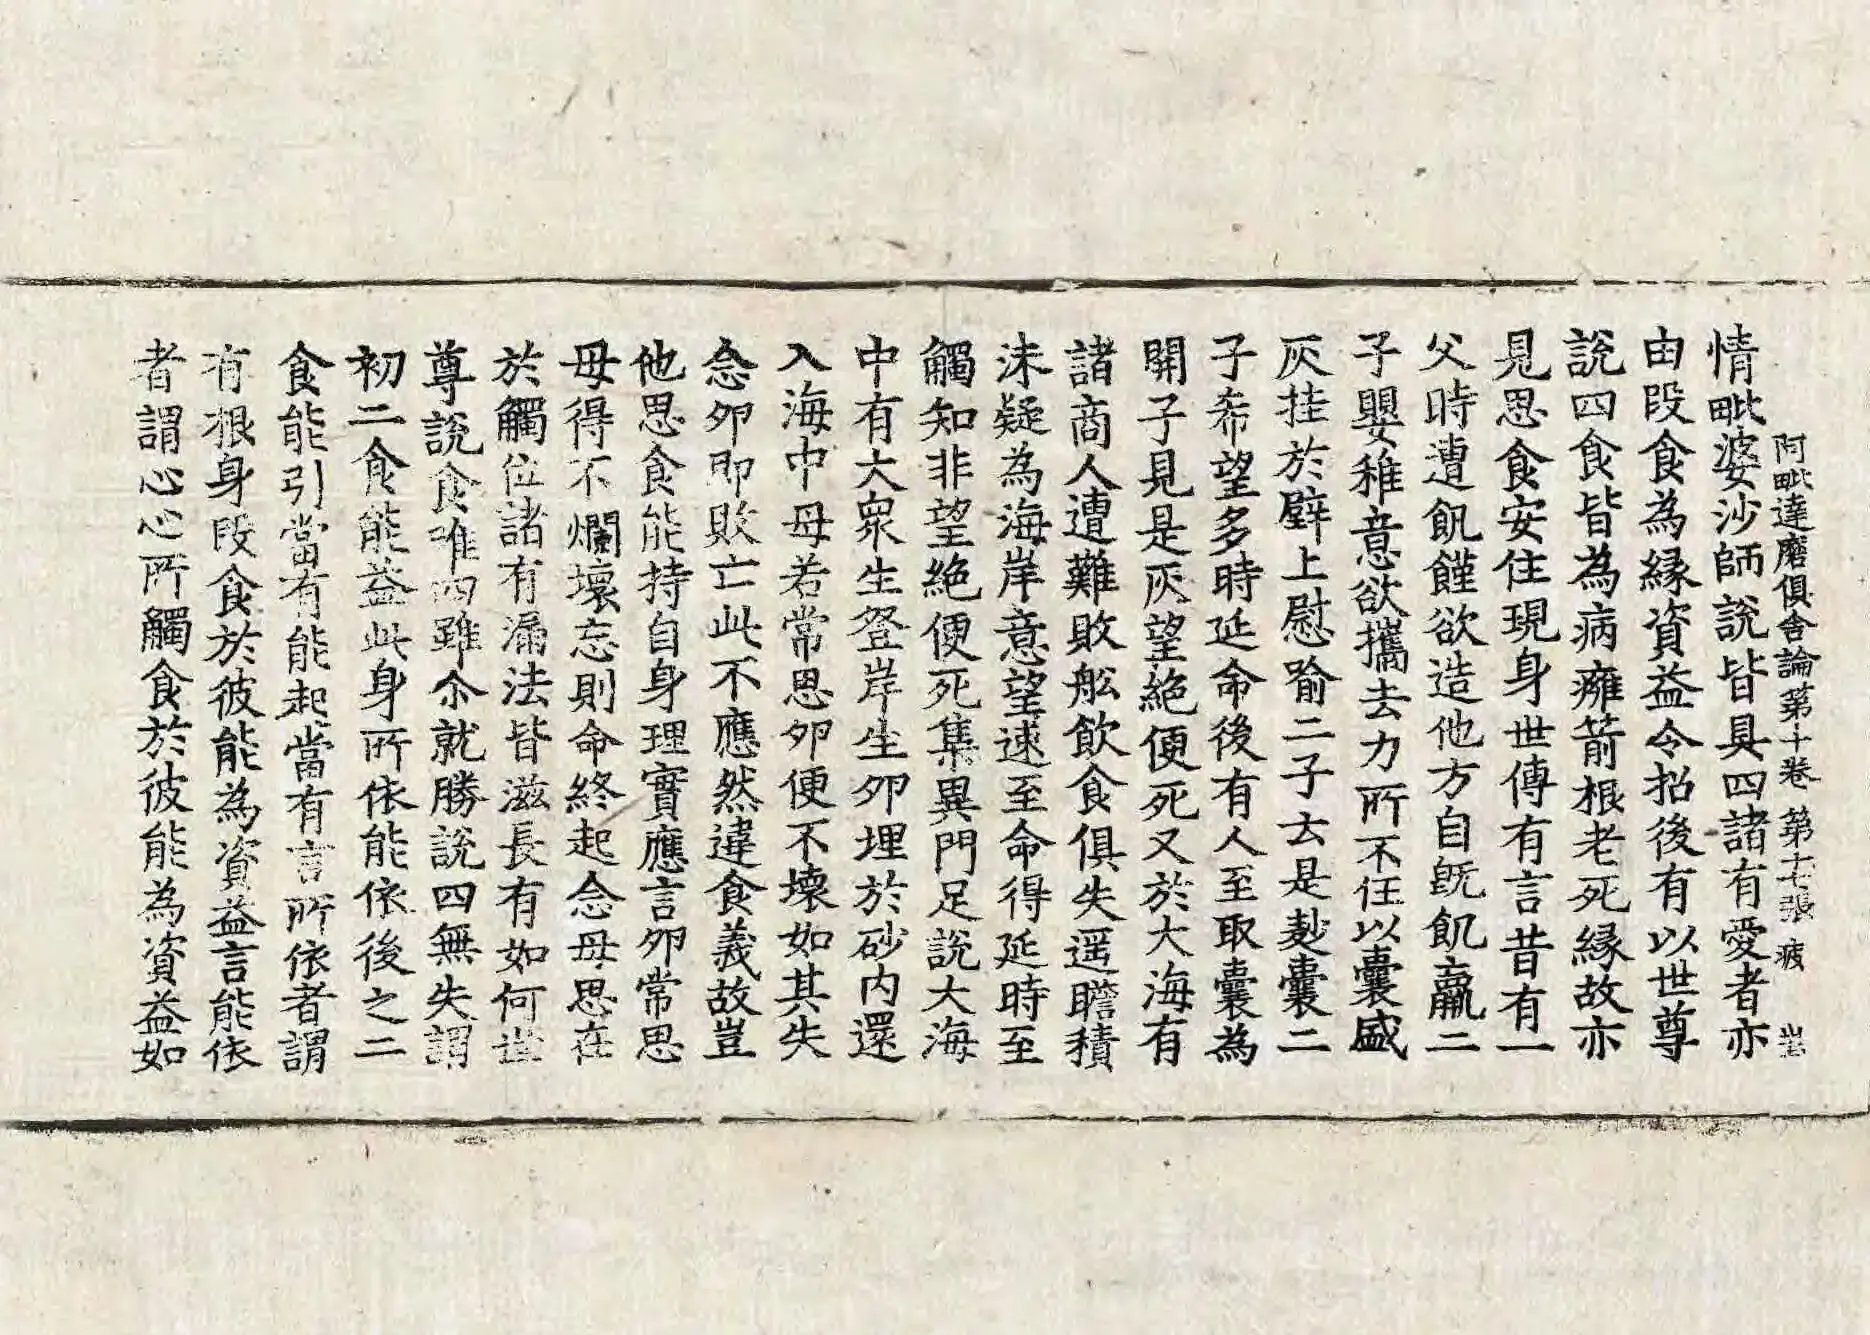 阿毗達磨俱舍論第十卷 第十七張 疲
情毗婆沙師說皆具四諸有愛者亦
由段食為緣資益令招後有以世尊
說四食皆為病癰箭根老死緣故亦
見思食安住現身世傳有言昔有一
父時遭飢饉欲造他方自既飢羸二
子嬰稚意欲攜去力所不任以囊盛
灰挂於壁上慰喻二子云是麨囊二
子希望多時延命後有人至取囊為
開子見是灰望絕便死又於大海有
諸商人遭難敗舩飲食俱失遥瞻積
沫疑為海岸意望速至命得延時至
觸知非望絕便死集異門足說大海
中有大眾生登岸生卵埋於砂內還
入海中母若常思卵便不壞如其失
念卵即敗亡此不應然違食義故豈
他思食能持自身理實應言卵常思
母得不爛壞忘則命終起念母思在
於觸位諸有漏法皆滋長有如何世
尊說食唯四雖尒就勝說四無失謂
初二食能益此身所依能依後之二
食能引當有能起當有言所依者謂
有根身段食於彼能為資益言能依
者謂心心所觸食於彼能為資益如